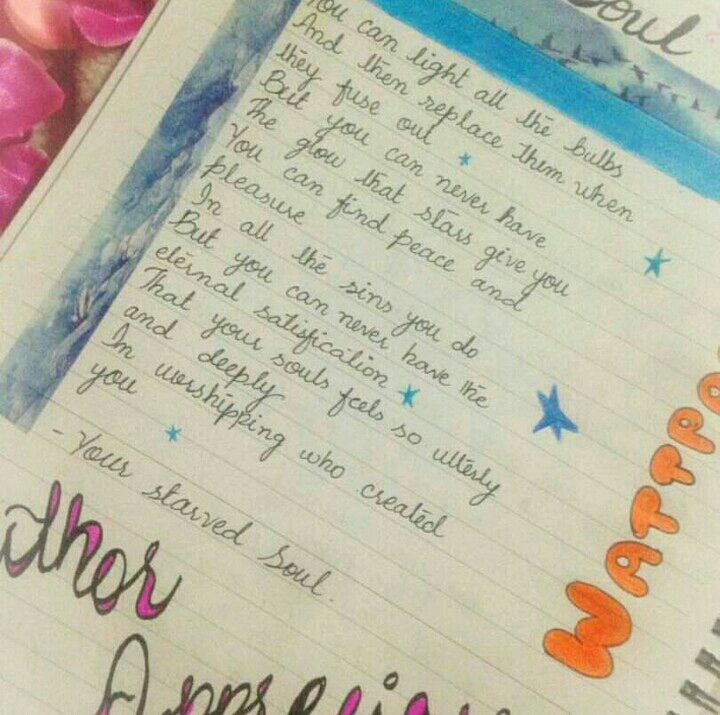 Soul
You can light all the bulbs
And then replace them when
they fuse out
But you can never have
The glow that stars give you
You can find peace and
pleasure
In all the sins you do
But you can never have the
eternal satisfication
That your souls feels so utterly
and deeply
In worshipping who created
you
- Your starved Soul.
WATTPA
uthor
Apprecia